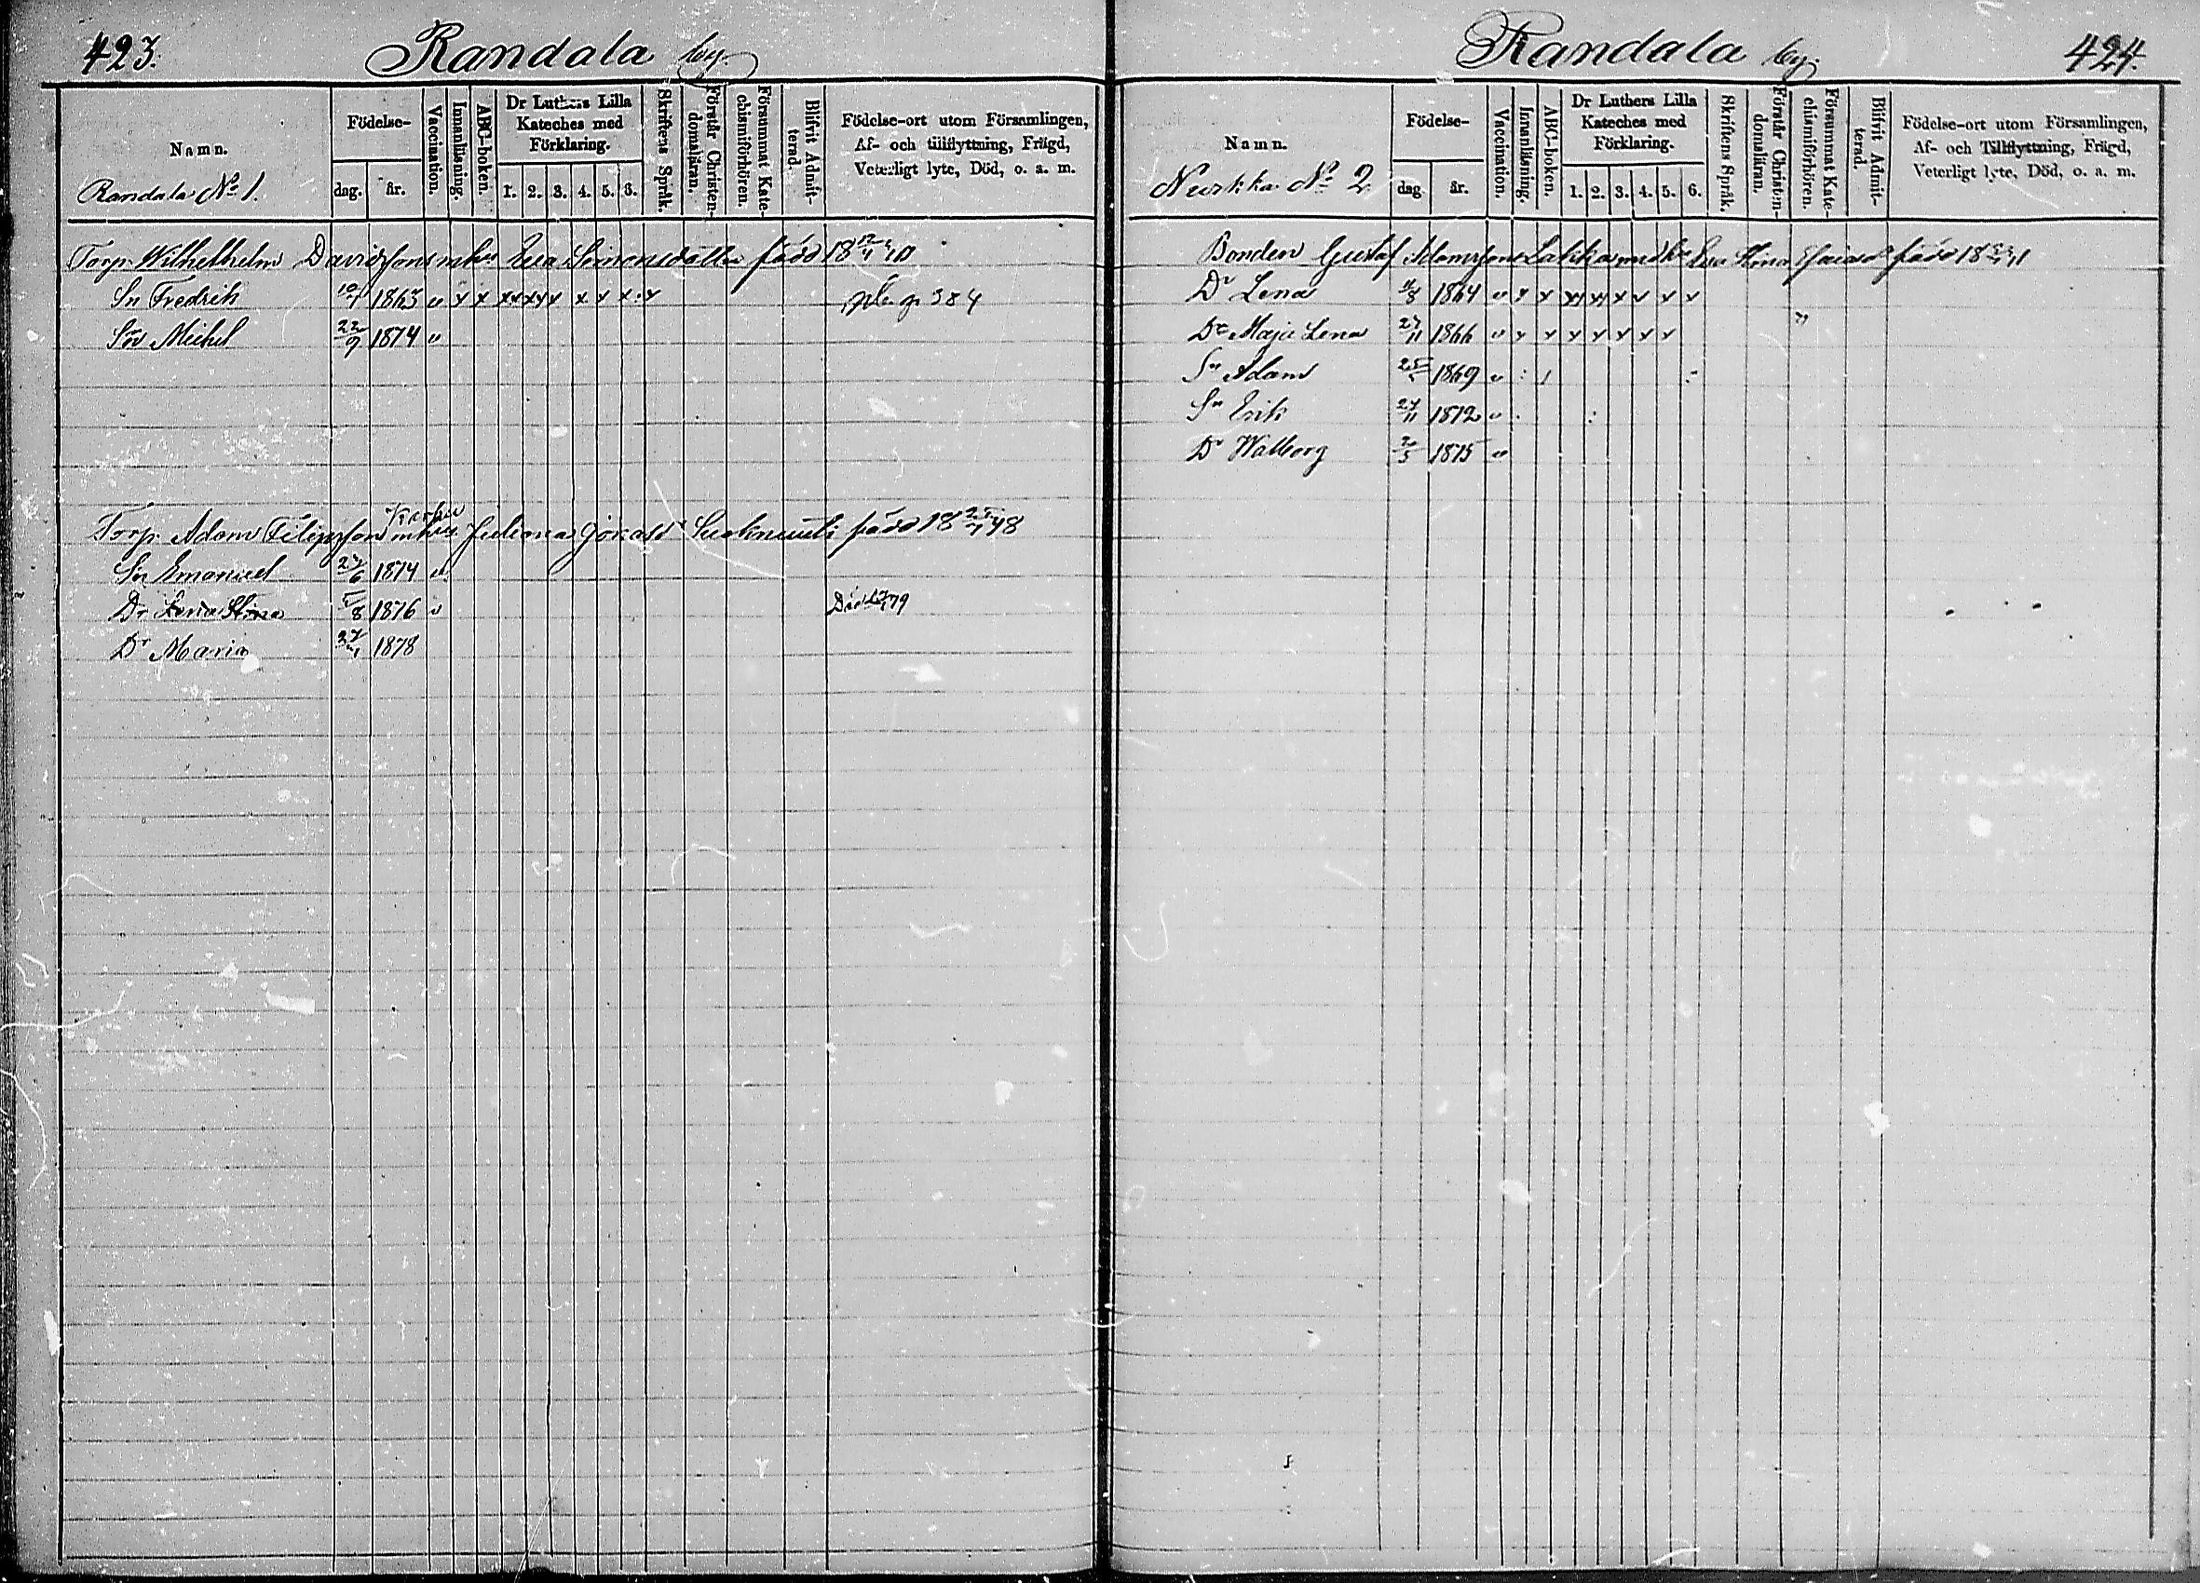 423.
Randala by.
Namn.
Randala No 1.
Födelse-
dag. år.
Vaccination.
Innanläsning.
ABC-boken.
Dr Luthers Lilla
Kateches med
Förklaring.
1. 2. 3. 4. 5. 6.
Skriftens Språk.
Förstår Christen-
domsläran.
Försummat Kate-
chismiförhören.
Blifvit Admit-
terad.
Födelse-ort utom Församlingen,
Af- och tillflyttning, Frägd,
Veterligt lyte, Död, o. a. m.
Torp. Wilhelhelm Davidsson m hu Eva Simonsdotter född 18
Sn Fredrik 10/1 1863 v x x xx xx x x x x p 384
Son Michel 22/9 1874 v
Torp. Adam Filipsson m hu Juliana född 18 48
Sn Emanuel 27/6 1874 v
Dr Lena Stina 8 1876 v Död 79
Dr Maria 27/1 1878
Randala by.
424.
Namn.
No 2
Födelse-
dag år.
Vaccination.
Innanläsning.
ABC-boken.
Dr Luthers Lilla
Kateches med
Förklaring.
1. 2. 3. 4. 5. 6.
Skriftens Språk.
Förstår Christen-
domsläran.
Försummat Kate-
chismiförhören.
Blifvit Admit-
terad.
Födelse-ort utom Församlingen,
Af- och Tillflyttning, Frägd,
Veterligt lyte, Död, o. a. m.
Bonden Gustaf Adamsson Lakka m hu Eva Stina född 18
Dr Lena 1864 v x x xx xx x x x x
Dr Maja Lena 27/11 1866 v x x x x x x x
Sn Adam 1869 v
Sn Erik 27/11 1872 v
Dr Walborg 2/5 1875 v